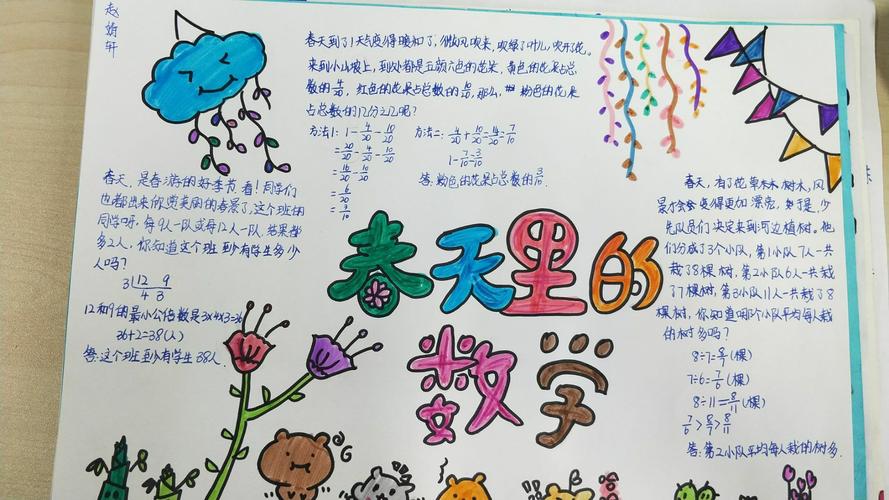 赵 婧 轩
春天到了!天气变得暖和了,微风吹来,吹绿了叶儿,吹开了花。
来到小山坡上,到处都是五颜六色的花朵,黄色的花朵占总
数的4/20,红色的花朵占总数的10/20,那么,粉色的花朵
占总数的几分之几呢?
方法1: 1-4/20-10/20
=20/20-4/20-10/20
=16/20-10/20
=6/20
=3/10
方法二: 4/20+10/20=14/20=7/10
1-7/10=3/10
答:粉色的花朵占总数的3/10.
春天,是春游的好季节,看!同学们
也都出来欣赏美丽的春景了,这个班的
同学呀,每9人一队或每12人一队,结果都
多2人,你知道这个班至少有学生多少
人吗?
3 12 9
4 3
12和9的最小公倍数是3×4×3=36
36+2=38(人)
答:这个班至少有学生38人.
春天里的
数学
春天,有了花草林木树木,风
景才会变得更加漂亮,于是,少
先队员们决定来到河边植树,他
们分成了3个小队,第1小队7人一共
栽了8棵树,第2小队6人一共栽
了7棵树,第3小队11人一共栽了8
棵树,你知道哪个小队平均每人栽
的树多吗?
8÷7=8/7(棵)
7÷6=7/6(棵)
8÷11=8/11(棵)
7/6>8/7>8/11
答:第2小队平均每人栽的树多.